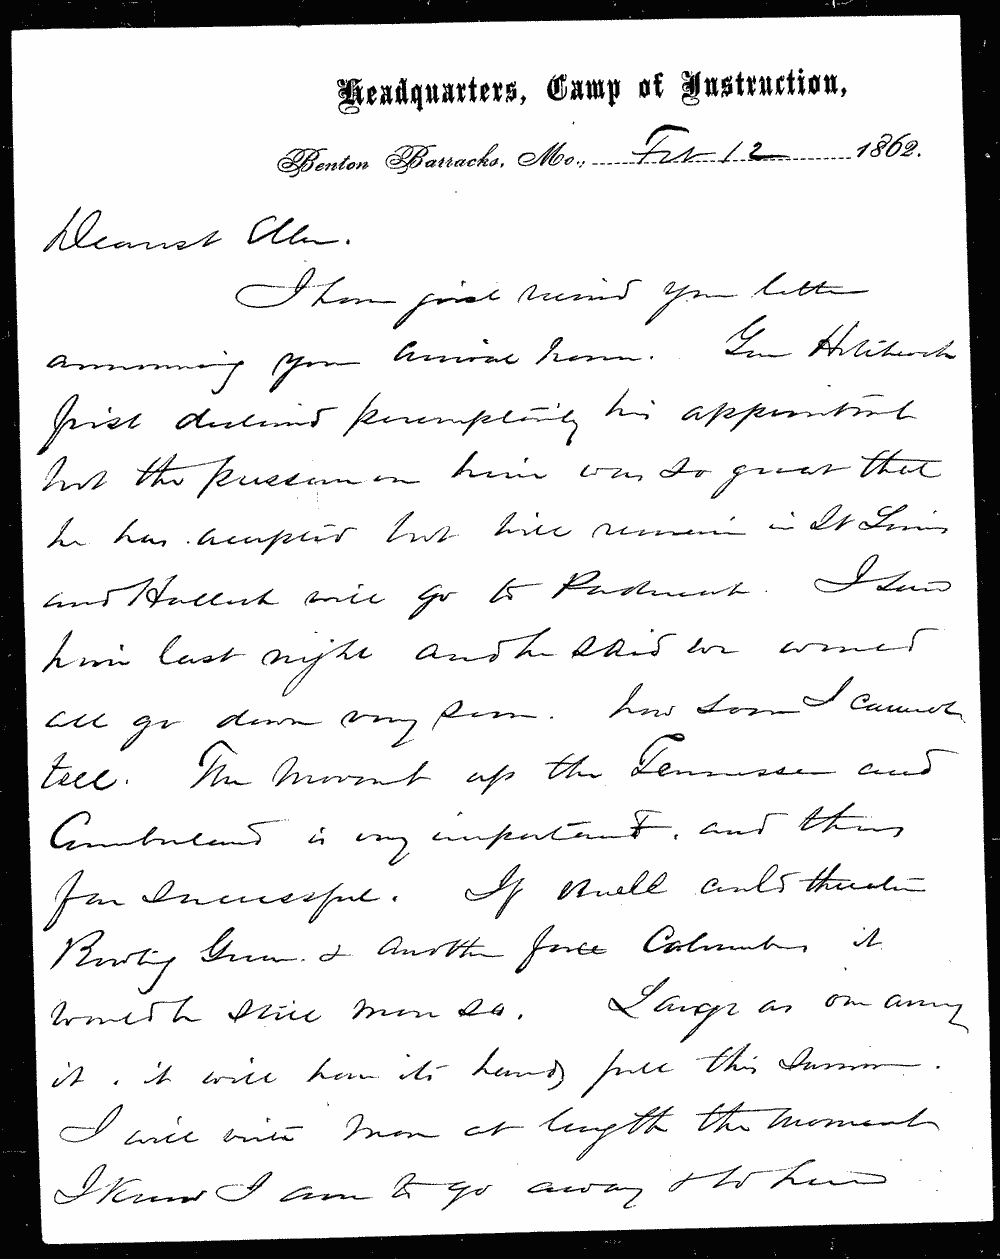 Headquarters, Camp of Instruction,
Benton Barracks, Mo., Feb 12 1862.
Dearest Ellen.
I have just received your letter
announcing your arrival home. Gen Hitchcock
first declined peremptorily his appointment
but the pressure on him was so great that
he has accepted but will remain in St Louis
and Halleck will go to Paducah. I saw
him last night and he said we would
all go down very soon. how soon I cannot
tell. The movement up the Tennessee and
Cumberland is very important, and thus
far successful. If Buell could threaten
Bowling Green & another force Columbus it
would be still more so. Large as our army
is, it will have its hands full this summer.
I will write more at length the moment
I know I am to go away & to